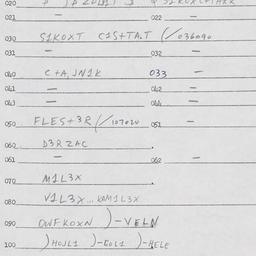 020
021 — 022 —
030 S1KOXT C1S+TA.T (/036090
031 — 032 —
040 C+A,JN1K 033 —
041 — 042 —
043 — 044 —
050 FLES+3R(/107020 051 —
060 D3RZAC
061 — 062 —
070 M1L3X
080 V1L3X...KOM1L3X
090 OWFKOXN )-VELN
100 )HOJL1 )-EOL1 )-HELE